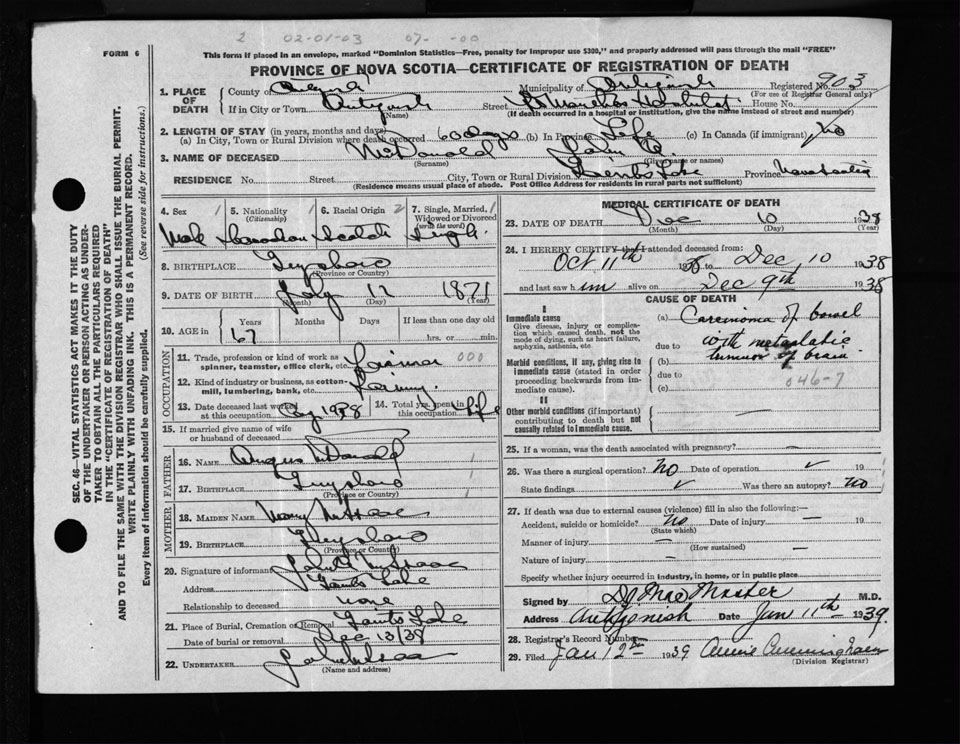 2 02-01-03 07- -00
FORM 6
This form if placed in an envelope, marked "Dominion Statistics—Free, penalty for improper use $300," and properly addressed will pass through the mail "FREE"
PROVINCE OF NOVA SCOTIA—CERTIFICATE OF REGISTRATION OF DEATH
1. PLACE OF DEATH County of Municipality of Registered No. 903
(For use of Registrar General only)
If in City or Town Antigonish Street St Marthas Hospital House No.
(Name) (If death occurred in a hospital or institution, give the name instead of street and number)
2. LENGTH OF STAY (in years, months and days)
(a) In City, Town or Rural Division where death occurred 60 days (b) In Province Life (c) In Canada (if immigrant) No
3. NAME OF DECEASED McDonald
(Surname) (Given name or names)
RESIDENCE No. Street City, Town or Rural Division Giants Lake Province Nova Scotia
(Residence means usual place of abode. Post Office Address for residents in rural parts not sufficient)
4. Sex 1 5. Nationality 1 6. Racial Origin 2 7. Single, Married, 1
(Citizenship) Widowed or Divorced
(write the word)
Male Canadian Scotch Single
8. BIRTHPLACE Guysboro
(Province or Country)
9. DATE OF BIRTH July 12 1871
(Month) (Day) (Year)
10. AGE in Years Months Days If less than one day old
67 hrs. or min.
OCCUPATION
11. Trade, profession or kind of work as
spinner, teamster, office clerk, etc. Farmer 000
12. Kind of industry or business, as cotton-
mill, lumbering, bank, etc. Farming
13. Date deceased last worked
at this occupation 1938
14. Total yrs. spent in
this occupation Life
15. If married give name of wife
or husband of deceased
FATHER
16. NAME Angus McDonald
17. BIRTHPLACE Guysboro
(Province or Country)
MOTHER
18. MAIDEN NAME Mary McIsaac
19. BIRTHPLACE Guysboro
(Province or Country)
20. Signature of informant McIsaac
Address Giants Lake
Relationship to deceased none
21. Place of Burial, Cremation or Removal Giants Lake
Date of burial or removal Dec 13/38
22. UNDERTAKER
(Name and address)
MEDICAL CERTIFICATE OF DEATH
23. DATE OF DEATH Dec 10 1938
(Month) (Day) (Year)
24. I HEREBY CERTIFY that I attended deceased from:
Oct 11th 19 to Dec 10 1938
and last saw him alive on Dec 9th 1938
CAUSE OF DEATH
I
Immediate cause
Give disease, injury or complica-
tion which caused death, not the
mode of dying, such as heart failure,
asphyxia, asthenia, etc.
(a) Carcinoma of bowel
due to with metastatic
tumor of brain.
Morbid conditions, if any, giving rise to
immediate cause (stated in order
proceeding backwards from im-
mediate cause).
(b)
due to
(c) 046-7
II
Other morbid conditions (if important)
contributing to death but not
causally related to immediate cause.
25. If a woman, was the death associated with pregnancy?
26. Was there a surgical operation? No Date of operation 19
State findings Was there an autopsy? No
27. If death was due to external causes (violence) fill in also the following:—
Accident, suicide or homicide? No Date of injury 19
(State which)
Manner of injury
(How sustained)
Nature of injury
Specify whether injury occurred in industry, in home, or in public place
Signed by MacMaster M.D.
Address Antigonish Date Jan 11th 1939.
28. Registrar's Record Number
29. Filed Jan 12th 1939 Annie Cunningham
(Division Registrar)
SEC. 46—VITAL STATISTICS ACT MAKES IT THE DUTY
OF THE UNDERTAKER OR PERSON ACTING AS UNDER-
TAKER TO OBTAIN ALL THE PARTICULARS REQUIRED
IN THE "CERTIFICATE OF REGISTRATION OF DEATH"
AND TO FILE THE SAME WITH THE DIVISION REGISTRAR WHO SHALL ISSUE THE BURIAL PERMIT.
WRITE PLAINLY WITH UNFADING INK. THIS IS A PERMANENT RECORD.
Every item of information should be carefully supplied. (See reverse side for instructions.)